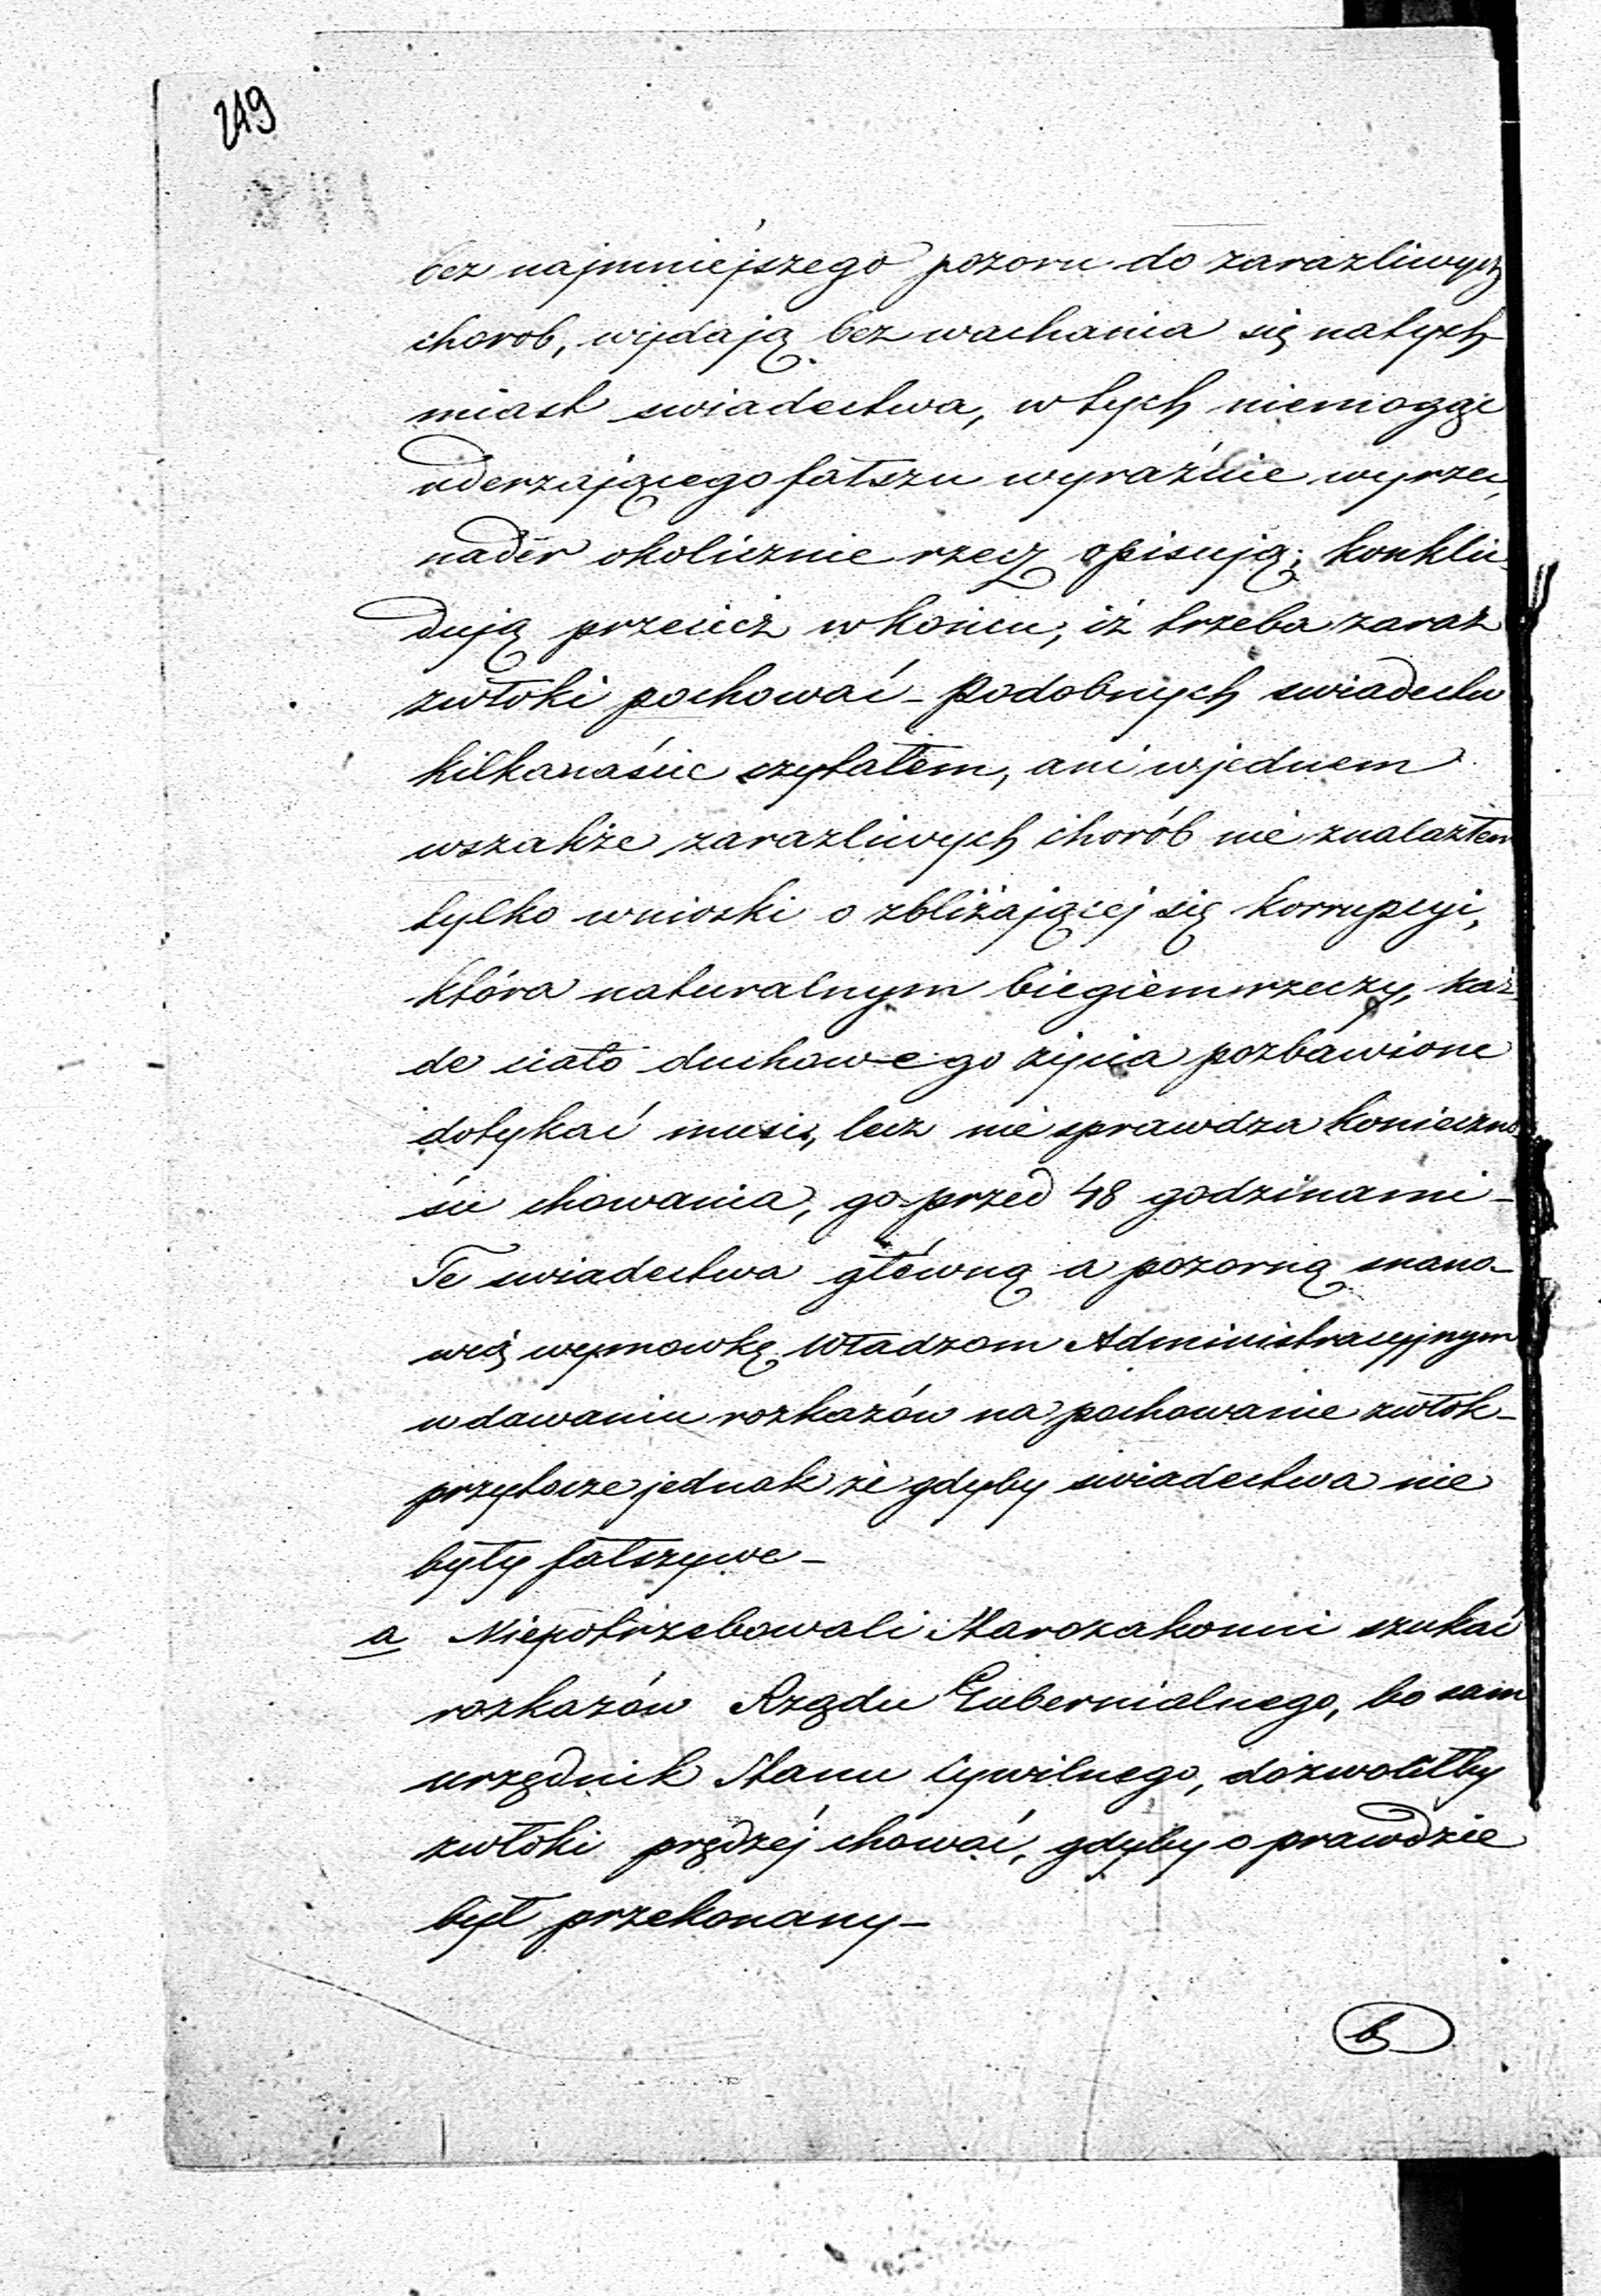 249
bez najmniejszego pozoru do zarazliwych
chorob, wydają bez wachania się natych
miast swiadectwa, w tych niemogąc
uderzającego fałszu wyraźnie wyrzec,
nadér okolicznie rzecz opisują; konklu-
dują przecież w końcu, iż trzeba zaraz
zwłoki pochować - Podobnych swiadectw
kilkanaście czytałem, ani w jednem
wszakże zarazliwych chorób nie znalazłem
tylko wnioski o zbliżającej się korrupcyi,
która naturalnym biegiem rzeczy, każ
de ciało duchowego życia pozbawione
dotykać musi, lecz nie sprawdza konieczno
ści chowania, go przed 48 godzinami -
Te swiadectwa główną a pozorną stano-
wią wymowkę Władzom Administracyjnym
w dawaniu rozkazów na pochowanie zwłok -
przytocze jednak że gdyby swiadectwa nie
były fałszywe -
a Niepotrzebowali Starozakonni szukać
rozkazów Rządu Gubernialnego, bo sam
urzędnik Stanu Cywilnego, dozwoliłby
zwłoki prędzéj chować, gdyby o prawdzie
był przekonany -
b